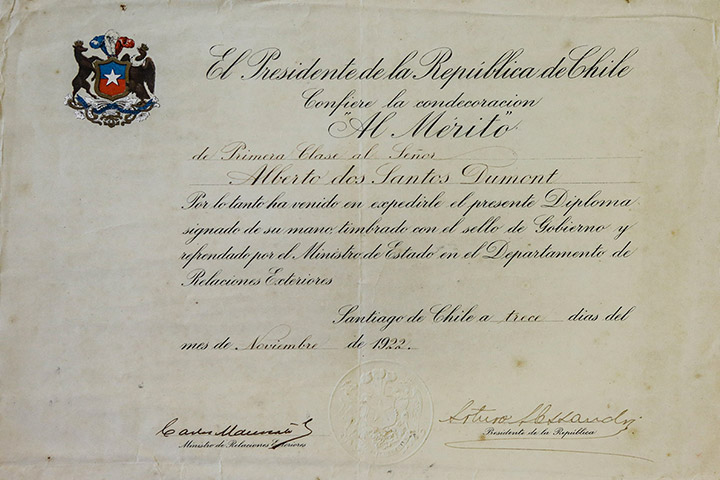 El Presidente de la República de Chile
Confiere la condecoracion
"Al Mérito"
de Primera Clase al Señor
Alberto dos Santos Dumont
Por lo tanto ha venido en expedirle el presente Diploma
signado de su mano, timbrado con el sello de Gobierno y
refrendado por el Ministro de Estado en el Departamento de
Relaciones Exteriores
Santiago de Chile a trece días del
mes de Noviembre de 1922.
Carlos
Arturo Alessandri
Ministro de Relaciones Exteriores
Presidente de la República